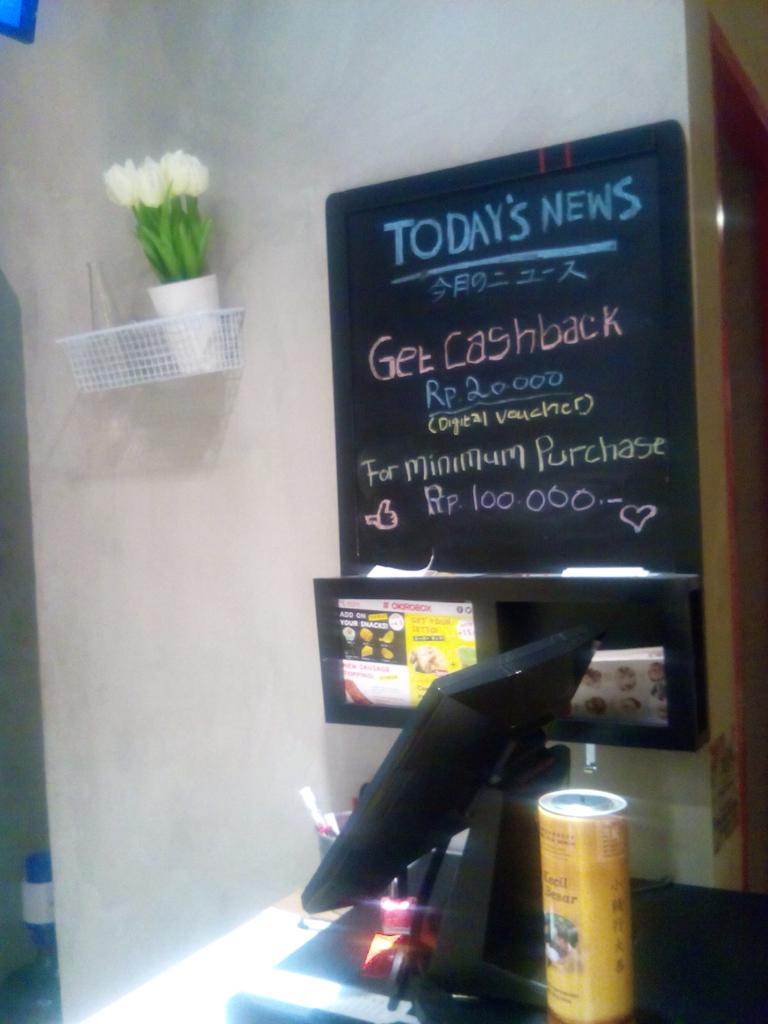 TODAY'S NEWS
今月のニュース
Get Cashback
Rp. 20.000
(Digital Voucher)
For minimum Purchase
Rp. 100.000.-
OKIROBOX
ADD ON
YOUR SNACKS!
GET YOUR
NEW SAUSAGE
TOPPING!
Kecil
Besar